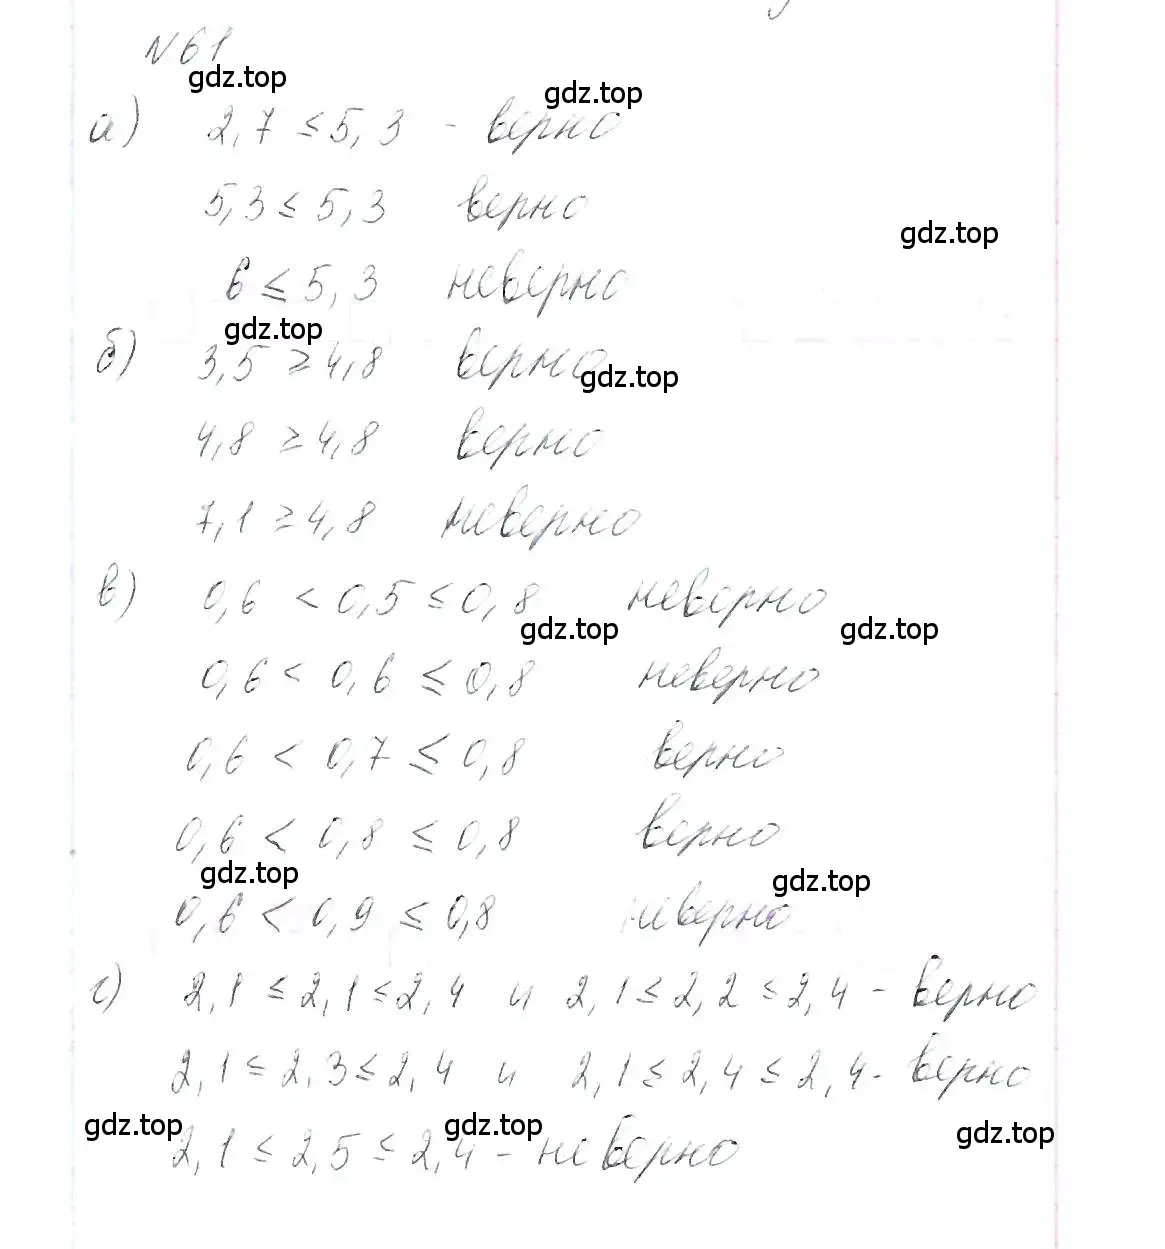 N 61
gdz.top
gdz.top
а) 2,7 ≤ 5,3 - верно
5,3 ≤ 5,3 верно
gdz.top
6 ≤ 5,3 неверно
gdz.top
б) 3,5 ≥ 4,8 верно
gdz.top
4,8 ≥ 4,8 верно
7,1 ≥ 4,8 неверно
в) 0,6 < 0,5 ≤ 0,8 неверно
gdz.top gdz.top
0,6 < 0,6 ≤ 0,8 неверно
0,6 < 0,7 ≤ 0,8 верно
0,6 < 0,8 ≤ 0,8 верно
gdz.top gdz.top
0,6 < 0,9 ≤ 0,8 неверно
г) 2,1 ≤ 2,1 ≤ 2,4 и 2,1 ≤ 2,2 ≤ 2,4 - верно
2,1 ≤ 2,3 ≤ 2,4 и 2,1 ≤ 2,4 ≤ 2,4 - верно
gdz.top gdz.top gdz.top
2,1 ≤ 2,5 ≤ 2,4 - неверно